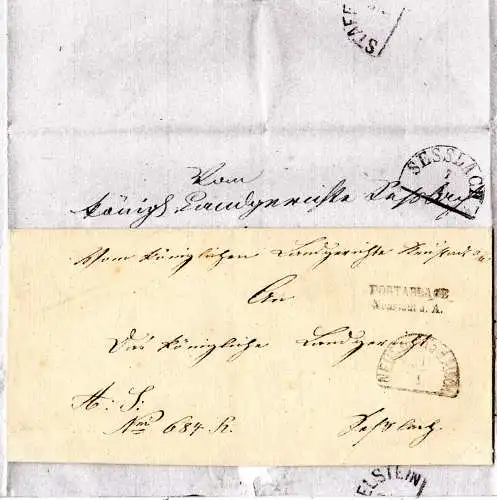 STAFF
SESSLACH
7
Vom
Königl. Landgerichte Seßlach
Vom Königlichen Landgerichte Neustadt a/A
An
POSTABLAGE
Neustadt a. A.
Das Königliche Landgericht
NEU
1
A: S:
Nro 684 R.
Seßlach.
ELSTEIN